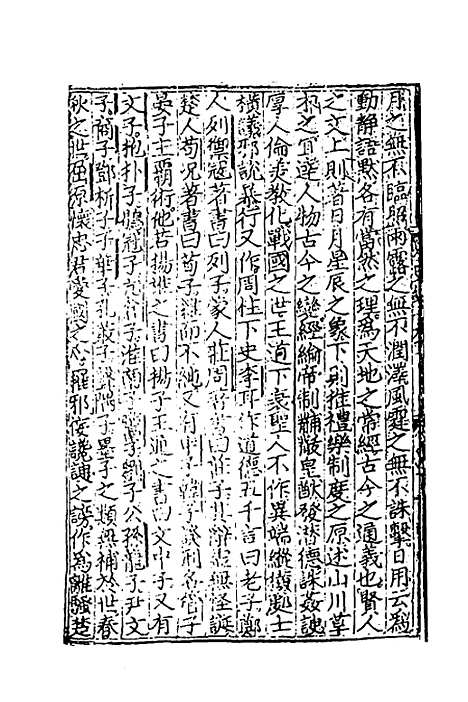 月之無不臨照雨露之無不潤澤風霆之無不誅擊日用云為
動靜語默各有當然之理為天地之常經古今之通義也賢人
之文上則著日月星辰之象下則推禮樂制度之原述山川草
木之宜達人物古今之變經綸帝制黼黻皇猷發潛德誅姦諛
厚人倫美教化戰國之世王道下衰聖人不作異端縱橫處士
橫議邪說暴行又作周柱下史李耳作道德五千言曰老子鄭
人列禦寇著書曰列子蒙人莊周著書曰莊子其辭虛無怪誕
楚人荀況著書曰荀子雜而不純又有申子韓子談刑名管子
晏子主覇術他若揚雄之書曰揚子王通之書曰文中子又有
文子抱朴子鶡冠子淮南子子公孫龍子尹文
子鬻子鄧析子子華子孔叢子墨子之類無補於世春
秋之世屈原懷忠君愛國之心罹邪佞讒諛之謗作為離騷楚